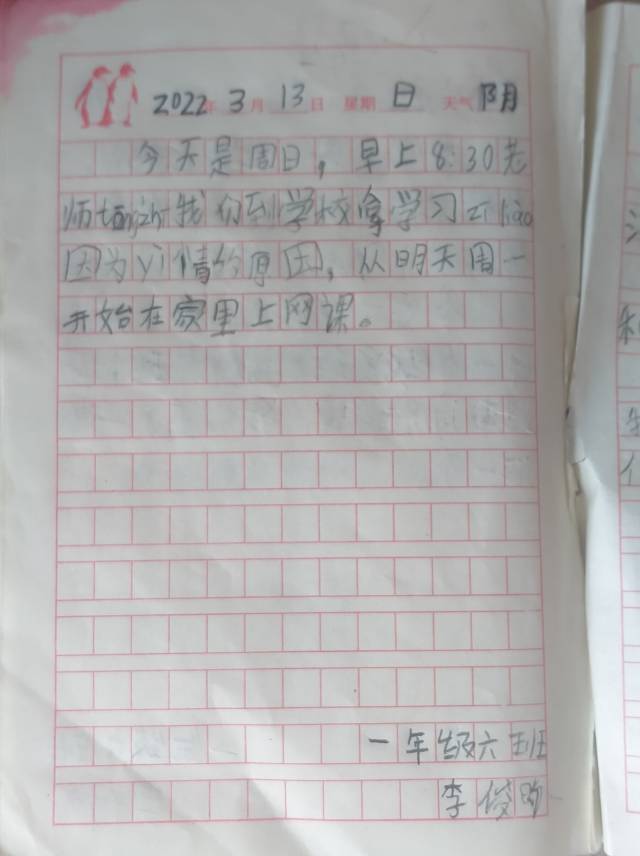 2022年 3月 13日 星期 日 天气 阴
今天是周日，早上8:30老
师tongzhi我们到学校拿学习zi liao
因为yi情的原因，从明天周一
开始在家里上网课。
一年级六班
李俊